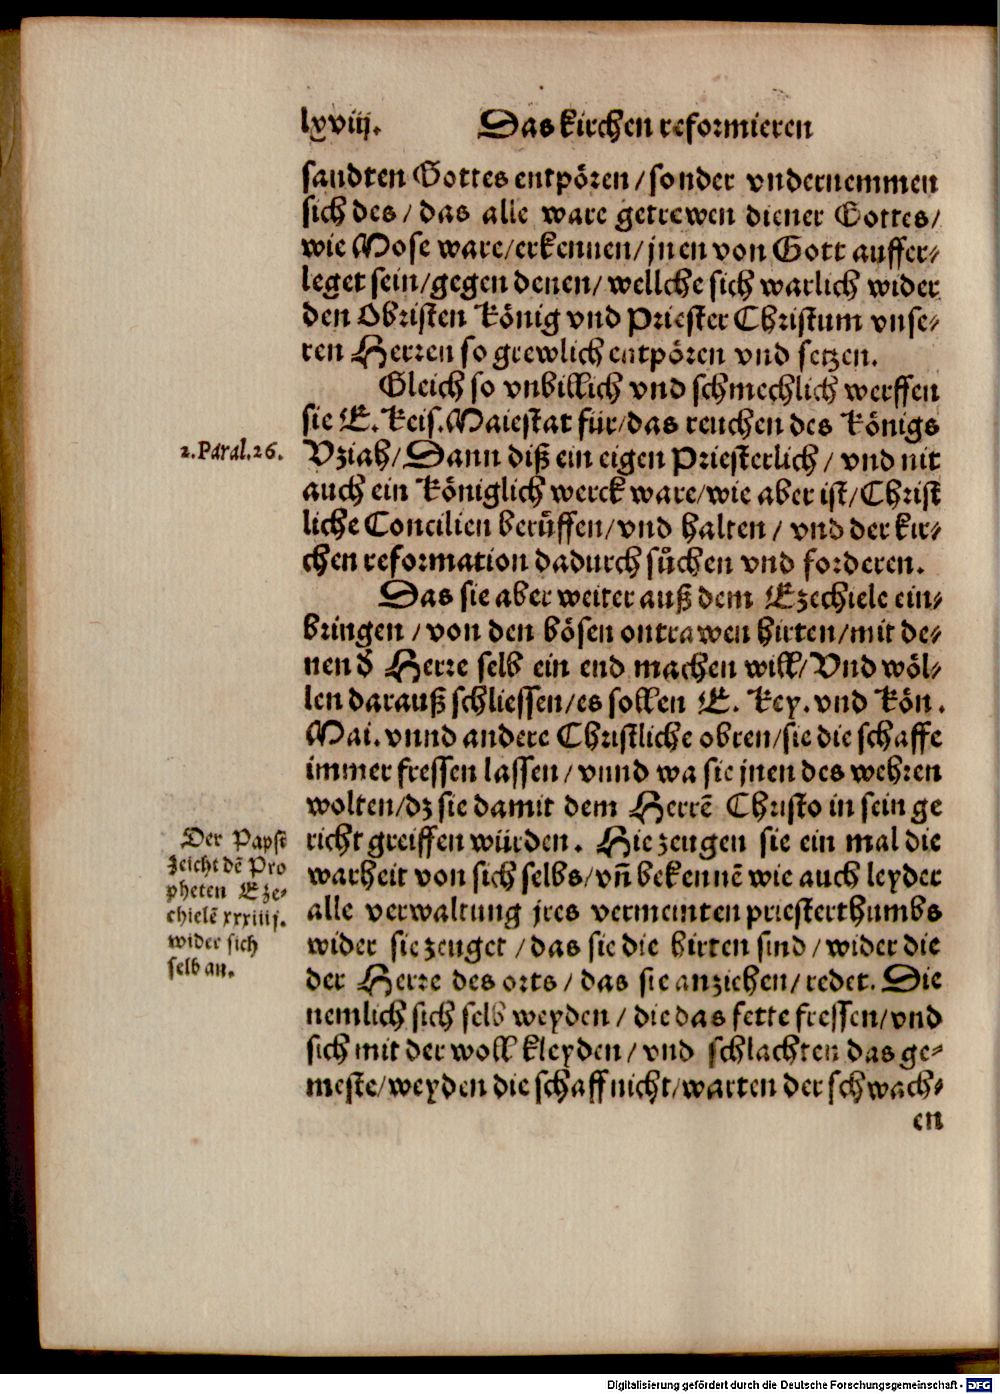 lxviij. Das kirchen reformieren
sandten Gottes entpören / sonder vndernemmen
sich des / das alle ware getrewen diener Gottes /
wie Mose ware / erkennen / jnen von Gott auffer⸗
leget sein / gegen denen / wellche sich warlich wider
den Obristen König vnd Priester Christum vnse⸗
ren Herren so grewlich entpören vnd setzen.
Gleich so vnbillich vnd schmechlich werffen
sie E. Keis. Maiestat für / das reuchen des Königs
2. Paral. 26.
Vziah / Dann diß ein eigen Priesterlich / vnd nit
auch ein Königlich werck ware / wie aber ist / Christ
liche Concilien berůffen / vnd halten / vnd der kir⸗
chen reformation dadurch sůchen vnd forderen.
Das sie aber weiter auß dem Ezechiele ein⸗
bringen / von den bösen ontrawen hirten / mit de⸗
nen d̕ Herre selb ein end machen will / Vnd wöl⸗
len darauß schliessen / es sollen E. Key. vnd Kön.
Mai. vnnd andere Christliche obren / sie die schaffe
immer fressen lassen / vnnd wa sie jnen des wehren
wolten / dz sie damit dem Herrē Christo in sein ge
richt greiffen würden. Hie zeugen sie ein mal die
warheit von sich selbs / vn̄ bekennē wie auch leyder
alle verwaltung jres vermeinten priesterthumbs
wider sie zeuget / das sie die hirten sind / wider die
der Herre des orts / das sie anziehen / redet. Die
nemlich sich selb weyden / die das fette fressen / vnd
sich mit der woll kleyden / vnd schlachten das ge⸗
meste / weyden die schaff nicht / warten der schwach⸗
en
Der Papst
zeicht dē Pro
pheten Eze⸗
chielē xxxiiij.
wider sich
selb an.
Digitalisierung gefördert durch die Deutsche Forschungsgemeinschaft - DFG